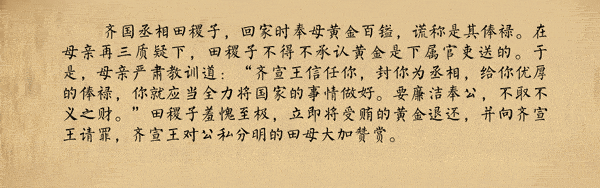 齐国丞相田稷子，回家时奉母黄金百镒，谎称是其俸禄。在
母亲再三质疑下，田稷子不得不承认黄金是下属官吏送的。于
是，母亲严肃教训道：“齐宣王信任你，封你为丞相，给你优厚
的俸禄，你就应当全力将国家的事情做好。要廉洁奉公，不取不
义之财。”田稷子羞愧至极，立即将受贿的黄金退还，并向齐宣
王请罪，齐宣王对公私分明的田母大加赞赏。